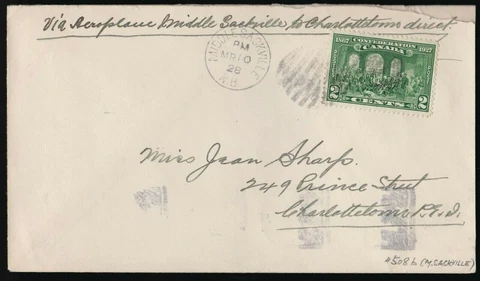 Via Aeroplane Middle Sackville to Charlottetown direct.
MIDDLE SACKVILLE
PM
MR 10
28
N.B.
1867 CONFEDERATION 1927
CANADA
2 CENTS 2
Miss Jean Sharp.
249 Prince Street
Charlottetown P.E.I.
#508b (M. SACKVILLE)